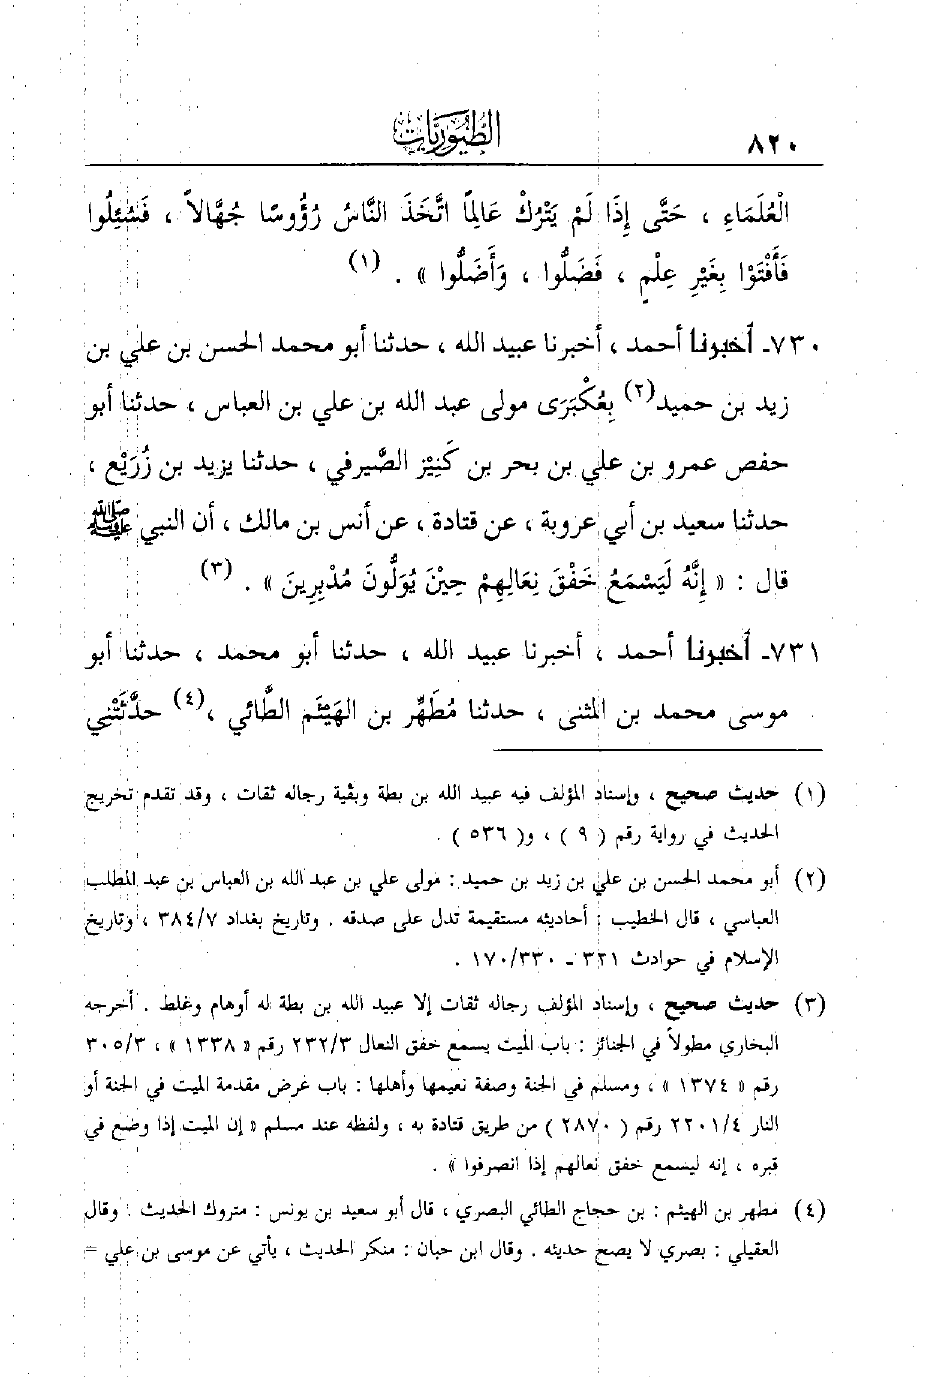 ٨٢٠
الطيوريات
الْعُلَمَاءِ ، حَتَّى إِذَا لَمْ يَتْرُكْ عَالِمًا اتَّخَذَ النَّاسُ رُؤُوسًا جُهَّالاً ، فَسُئِلُوا
فَأَفْتَوْا بِغَيْرِ عِلْمٍ ، فَضَلُّوا ، وَأَضَلُّوا » . (١)
٧٣٠- أخبرنا أحمد ، أخبرنا عبيد الله ، حدثنا أبو محمد الحسن بن علي بن
زيد بن حميد(٢) بِعُكْبَرَى مولى عبد الله بن علي بن العباس ، حدثنا أبو
حفص عمرو بن علي بن بحر بن كَنِيْز الصَّيرفي ، حدثنا يزيد بن زُرَيْع ،
حدثنا سعيد بن أبي عروبة ، عن قتادة ، عن أنس بن مالك ، أن النبي ﷺ
قال : « إِنَّهُ لَيَسْمَعُ خَفْقَ نِعَالِهِمْ حِيْنَ يُوَلُّونَ مُدْبِرِينَ » . (٣)
٧٣١- أخبرنا أحمد ، أخبرنا عبيد الله ، حدثنا أبو محمد ، حدثنا أبو
موسى محمد بن المثنى ، حدثنا مُطَهَّر بن الهَيْثَم الطَّائي ،(٤) حدَّثَتْني
(١) حديث صحيح ، وإسناد المؤلف فيه عبيد الله بن بطة وبقية رجاله ثقات ، وقد تقدم تخريج
الحديث في رواية رقم ( ٩ ) ، و( ٥٣٦ ) .
(٢) أبو محمد الحسن بن علي بن زيد بن حميد : مولى علي بن عبد الله بن العباس بن عبد المطلب
العباسي ، قال الخطيب : أحاديثه مستقيمة تدل على صدقه . وتاريخ بغداد ٣٨٤/٧ ، وتاريخ
الإسلام في حوادث ٣٢١ - ١٧٠/٣٣٠ .
(٣) حديث صحيح ، وإسناد المؤلف رجاله ثقات إلا عبيد الله بن بطة له أوهام وغلط . أخرجه
البخاري مطولاً في الجنائز : باب الميت يسمع خفق النعال ٢٣٢/٣ رقم « ١٣٣٨ » ، ٣٠٥/٣
رقم « ١٣٧٤ » ، ومسلم في الجنة وصفة نعيمها وأهلها : باب عرض مقدمة الميت في الجنة أو
النار ٢٢٠١/٤ رقم ( ٢٨٧٠ ) من طريق قتادة به ، ولفظه عند مسلم « إن الميت إذا وضع في
قبره ، إنه ليسمع خفق نعالهم إذا انصرفوا » .
(٤) مطهر بن الهيثم : بن حجاج الطائي البصري ، قال أبو سعيد بن يونس : متروك الحديث . وقال
العقيلي : بصري لا يصح حديثه . وقال ابن حبان : منكر الحديث ، يأتي عن موسى بن علي =